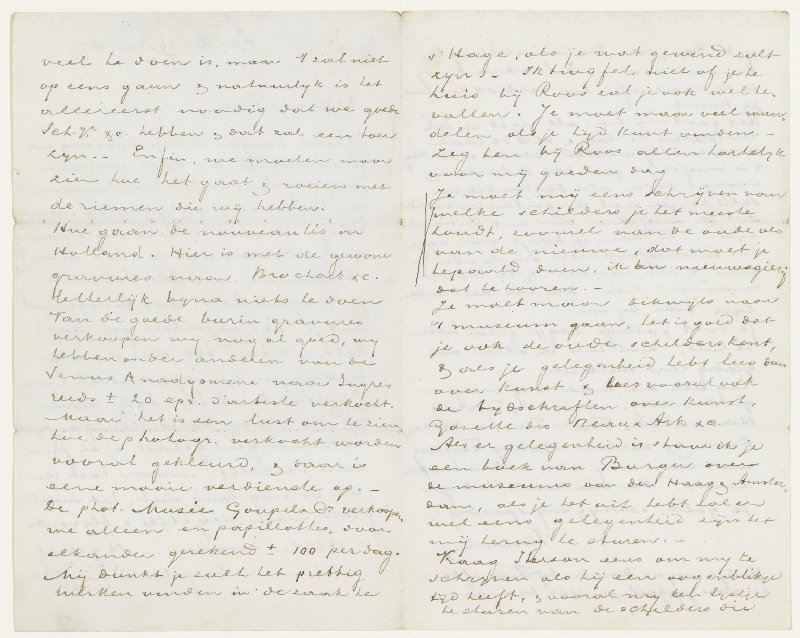 veel te doen is, maar 't zal niet
op eens gaan & natuurlyk is het
allereerst noodig dat we goede
Sch.Kn &c. hebben & dat zal een toer
zyn. - Enfin, we moeten maar
zien hoe het gaat & roeien met
de riemen die wy hebben.
Hoe gaan de nouveautés in
Holland. Hier is met de gewone
gravures naar Brochart &c.
letterlyk byna niets te doen
Van de goede burin gravures
verkoopen wy nog al goed, wy
hebben onder anderen van de
Venus Anadyomene naar Ingres
reeds ± 20 epr. d'artiste verkocht.
Maar het is een lust om te zien
hoe de photogr. verkocht worden
vooral gekleurd, & daar is
eene mooie verdienste op. -
De phot. Musée Goupil & Co verkoopen
we alleen en papillottes, door
elkander gerekend ± 100 per dag.
My dunkt je zult het prettig
werken vinden in de zaak te
s'Hage, als je wat gewend zult
zyn. - Ik twyfel niet of je te
huis by Roos zal je ook wel be-
vallen. Je moet maar veel wan-
delen als je tyd kunt vinden. -
Zeg hen by Roos allen hartelyk
voor my goeden dag
Je moet my eens schryven van
welke schilders je het meeste
houdt, zoowel van de oude als
van de nieuwe, dat moet je
bepaald doen, ik ben nieuwsgierig
dat te hooren. -
Je moet maar dikwyls naar
't museum gaan, het is goed dat
je ook de oude schilders kent,
& als je gelegenheid hebt lees dan
over kunst & lees vooral ook
de tydschriften over kunst,
Gazette des Beaux Arts &c.
Als er gelegenheid is stuur ik je
een boek van Burger over
de museums van den Haag & Amster-
dam, als je het uit hebt zal er
wel eens gelegenheid zyn het
my terug te sturen. -
Vraag Iterson eens om my te
schryven als hy een oogenblikje
tyd heeft, & vooral my een lystje
te sturen van de schilders die